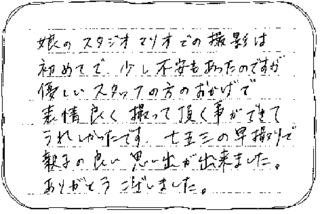 娘のスタジオマリオでの撮影は
初めてで、少し不安もあったのですが
優しいスタッフの方のおかげで
表情良く撮って頂く事ができて
うれしかったです。七五三の早撮りで
親子の良い思い出が出来ました。
ありがとうございました。